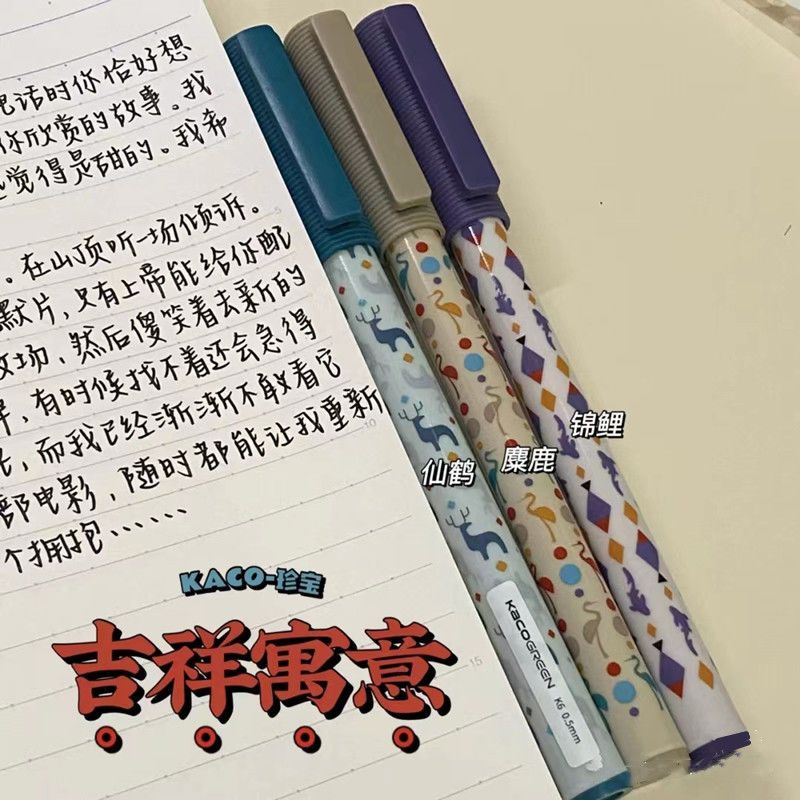 话时你恰好想
你欣赏的故事。我
觉得是甜的。我希
。在山顶听一场倾诉。
默片,只有上帝能给你配
放场、然后傻笑着去新的
,有时候找不着还会急得
,而我已经渐渐不敢看它
部电影,随时都能让我重新
个拥抱……
5
10
15
锦鲤
麋鹿
仙鹤
KACO-珍宝
吉祥寓意
KACOGREEN K6 0.5mm